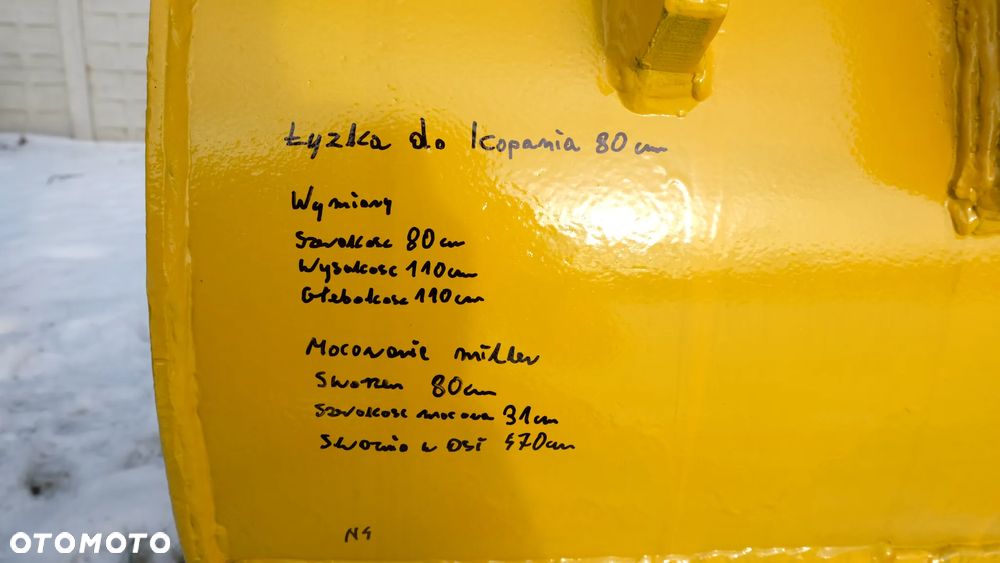 Łyzka do kopania 80 cm
Wymiary
Szerokosc 80cm
Wysokosc 110cm
Głebokosc 110cm
Mocowanie miller
Sworzen 80cm
Szerokosc mocowa 31cm
w osi 470cm
OTOMOTO